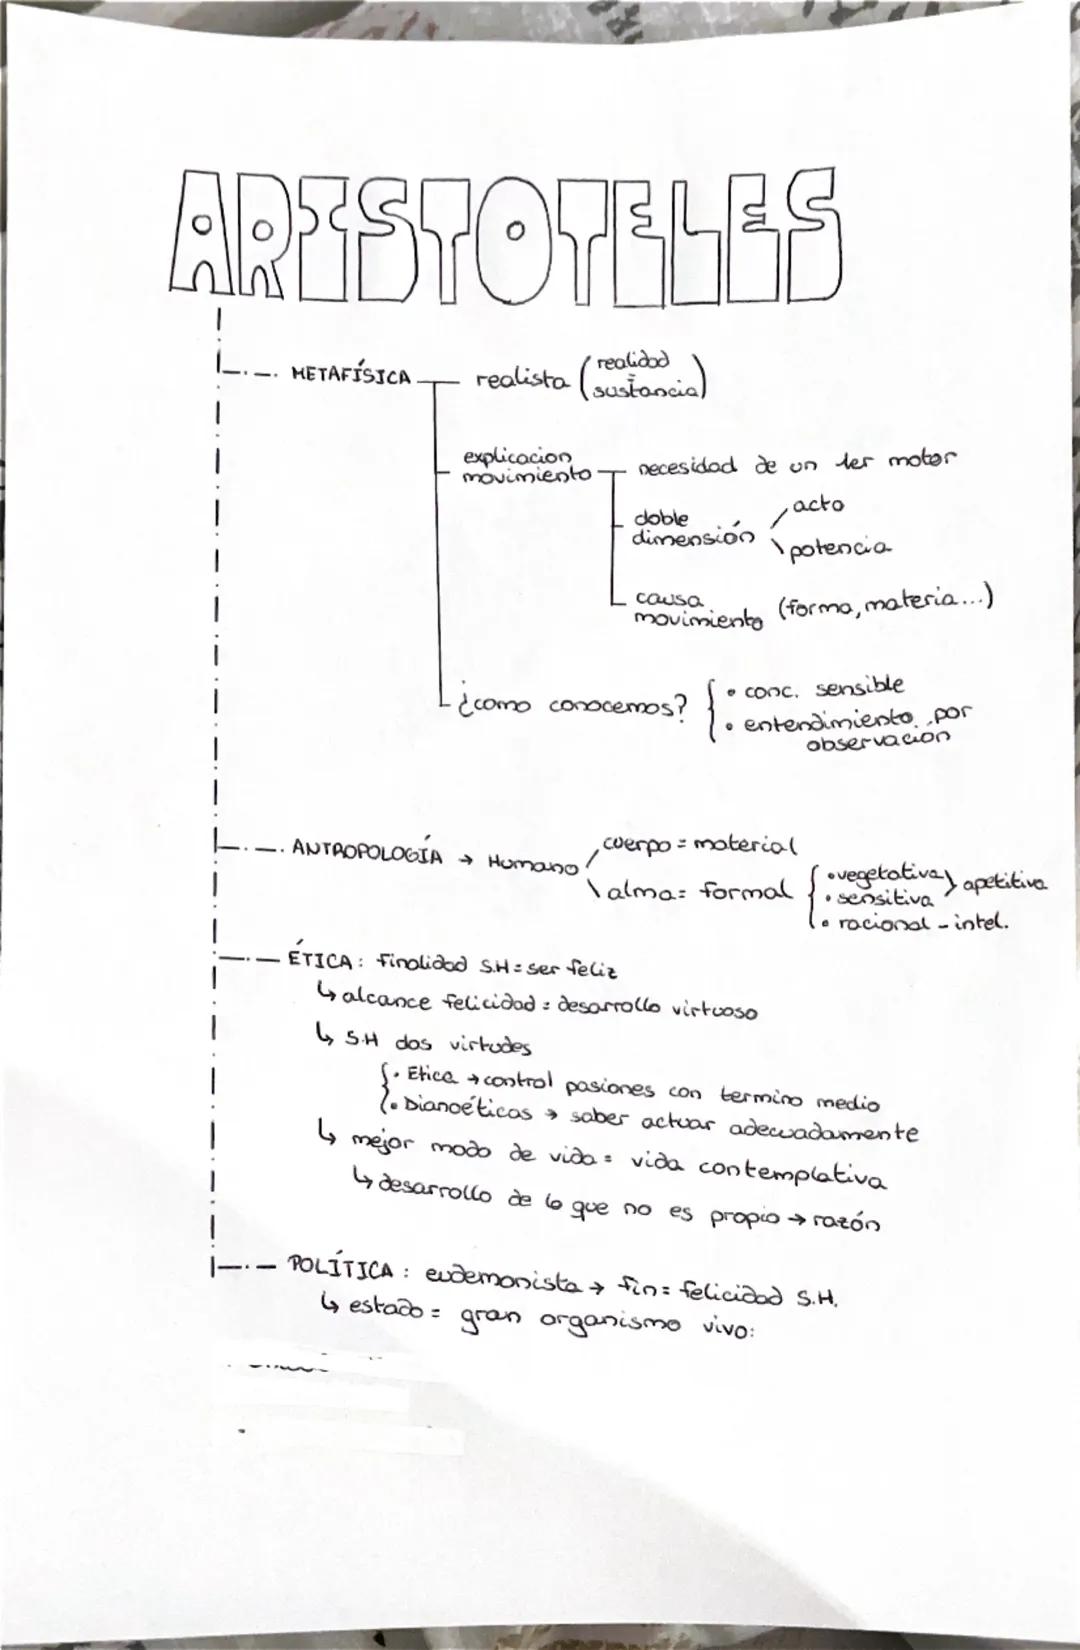 ARISTOTELES
METAFÍSICA
realista (realidad = sustancia)
explicacion
movimiento
necesidad de un 1er motor
doble
dimensión
acto
potencia
causa
movimiento (forma, materia...)
¿como conocemos?
• conc. sensible
• entendimiento por
observacion
ANTROPOLOGÍA → Humano
cuerpo = material
alma = formal
• vegetativa
• sensitiva
apetitiva
• racional - intel.
ÉTICA: Finalidad S.H = ser feliz
↳ alcance felicidad = desarrollo virtuoso
↳ S.H dos virtudes
• Etica → control pasiones con termino medio
• Dianoéticas → saber actuar adecuadamente
↳ mejor modo de vida = vida contemplativa
↳ desarrollo de lo que no es propio → razón
POLÍTICA: eudemonista → fin = felicidad S.H.
↳ estado = gran organismo vivo: